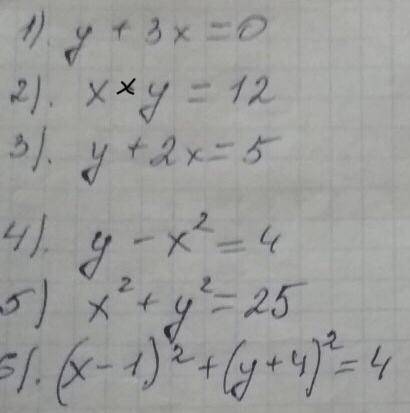 1). y + 3x = 0
2). x × y = 12
3). y + 2x = 5
4). y - x² = 4
5) x² + y² = 25
6). (x - 1)² + (y + 4)² = 4